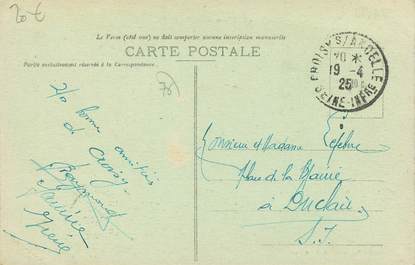 20 €
Le Verso (côté vue) ne doit comporter aucune inscription manuscrite
CARTE POSTALE
Partie exclusivement réservée à la Correspondance.
CROISY S/ANDELLE
10 *
19 - 4
25
SEINE-INFRE
76
bons amitiés
de Croisy
Raymond
Maurice
Irene
Monsieur et Madame Lefebvre
Place de la Mairie
à Duclair
S. I.